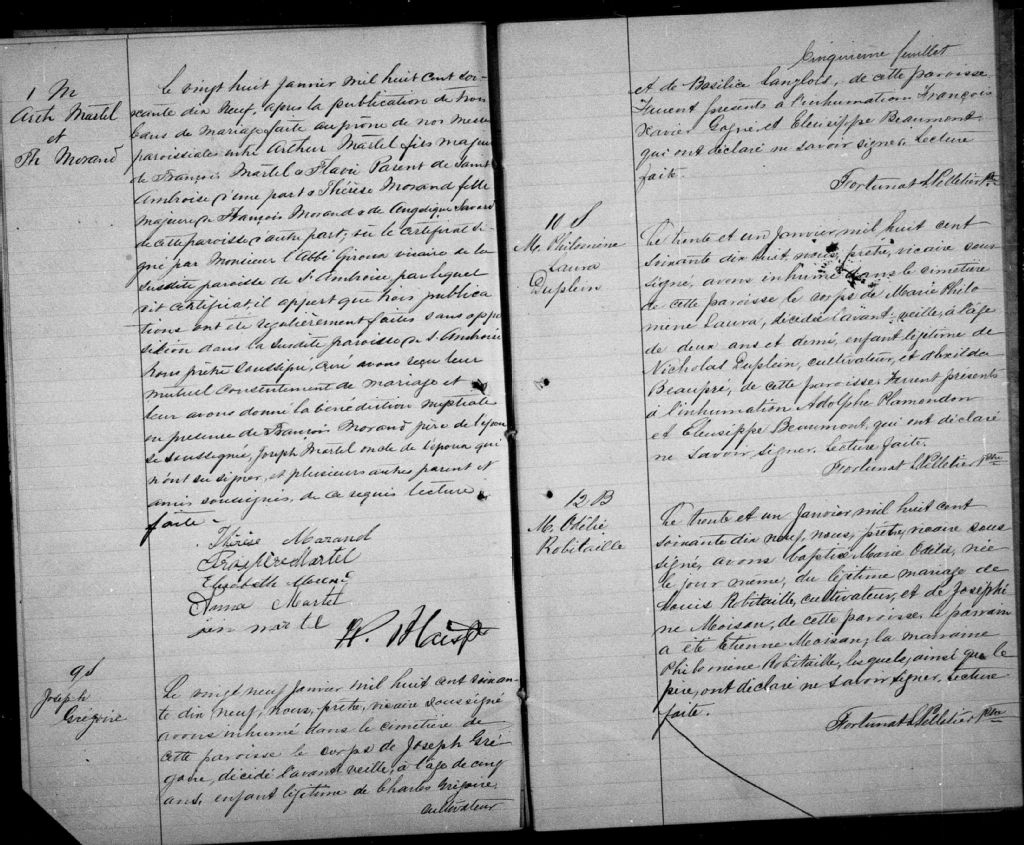 1 M
Arth Martel
et
Th Morand
Le vingt huit Janvier mil huit cent soi-
xante dix neuf, après la publication de trois
bans de mariage faite au prône de nos messes
paroissiales entre Arthur Martel fils majeur
de François Martel & Flavie Parent de Saint
Ambroise d'une part & Thérèse Morand fille
majeure de François Morand & de Angelique Savard
de cette paroisse d'autre part; vu le certificat si-
gné par Monsieur l'Abbé Giroux vicaire de la
susdite paroisse de St Ambroise par lequel
dit certificat il appert que trois publica
tions ont été régulièrement faites sans oppo
sition dans la susdite paroisse de S. Ambroise
Nous prêtre soussigné, curé avons reçu leur
mutuel consentement de mariage et
leur avons donné la bénédiction nuptiale
en présence de François Morand père de l'épou
se soussigné, Joseph Martel oncle de l'époux qui
n'ont su signer, et plusieurs autres parent et
amis soussignés, de ce requis lecture
faite -
Thérèse Morand
Martel
Elisabeth
Anna Martel
9 S
Joseph
Grégoire
Le vingt neuf Janvier mil huit cent soixan-
te dix neuf, nous, prêtre, vicaire soussigné
avons inhumé dans le cimetière de
cette paroisse le corps de Joseph Gré
goire, décédé l'avant veille, à l'âge de cinq
ans, enfant légitime de Charles Grégoire,
cultivateur
Cinquième feuillet
et de Basilice Langlois, de cette paroisse
Furent présents à l'inhumation François
Xavier Gagné et Eleusippe Beaumont
qui ont déclaré ne savoir signer. Lecture
faite.
Fortunat L Pelletier Ptre
10 S
M. Philomène
Laura
Duplein
Le trente et un Janvier mil huit cent
soixante dix huit, nous, prêtre, vicaire sous
signé, avons inhumé dans le cimetière
de cette paroisse le corps de Marie Philo
mène Laura, décédée l'avant-veille, à l'âge
de deux ans et demi, enfant légitime de
Nicholas Duplein, cultivateur, et
Beaupré, de cette paroisse. Furent présents
à l'inhumation Adolphe Plamondon
et Eleusippe Beaumont, qui ont déclaré
ne savoir signer. Lecture faite.
Fortunat L Pelletier Ptre
12 B
M. Odélie
Robitaille
Le trente et un Janvier mil huit cent
soixante dix neuf, nous, prêtre, vicaire sous
signé, avons baptisé Marie Odélie, née
le jour même, du légitime mariage de
Louis Robitaille, cultivateur, et de Joséphi
ne Moisan, de cette paroisse. Le parrain
a été Etienne Moisan, la marraine
Philomène Robitaille, lesquels, ainsi que le
père, ont déclaré ne savoir signer. Lecture
faite.
Fortunat L Pelletier Ptre